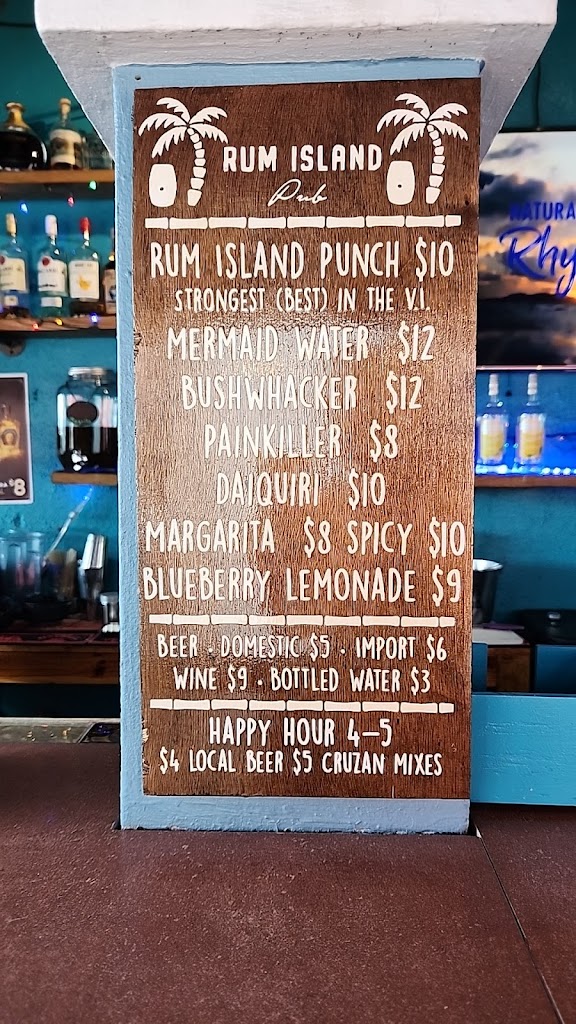 RUM ISLAND
Pub
RUM ISLAND PUNCH $10
STRONGEST (BEST) IN THE V.I.
MERMAID WATER $12
BUSHWHACKER $12
PAINKILLER $8
DAIQUIRI $10
MARGARITA $8 SPICY $10
BLUEBERRY LEMONADE $9
BEER · DOMESTIC $5 · IMPORT $6
WINE $9 · BOTTLED WATER $3
HAPPY HOUR 4–5
$4 LOCAL BEER $5 CRUZAN MIXES
NATURA
Rhy
$8